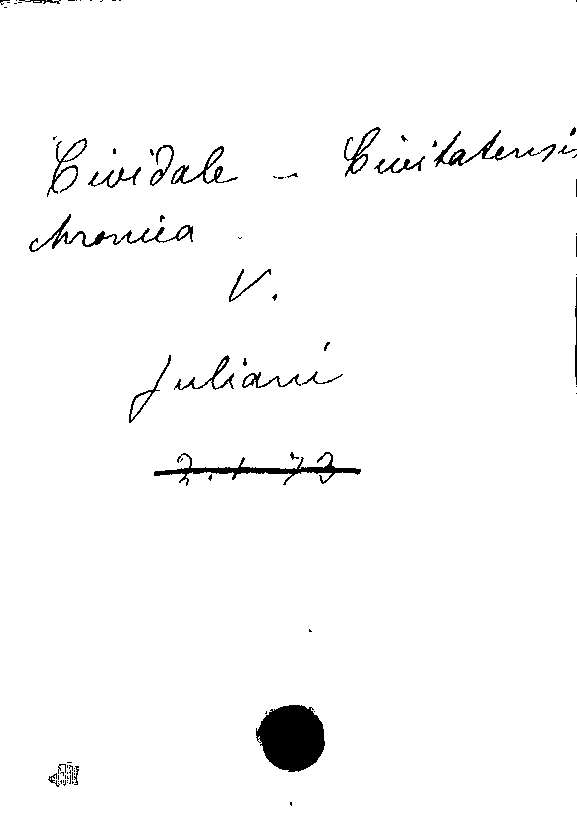 Cividale - Civitatensis
chronica
V.
Juliani